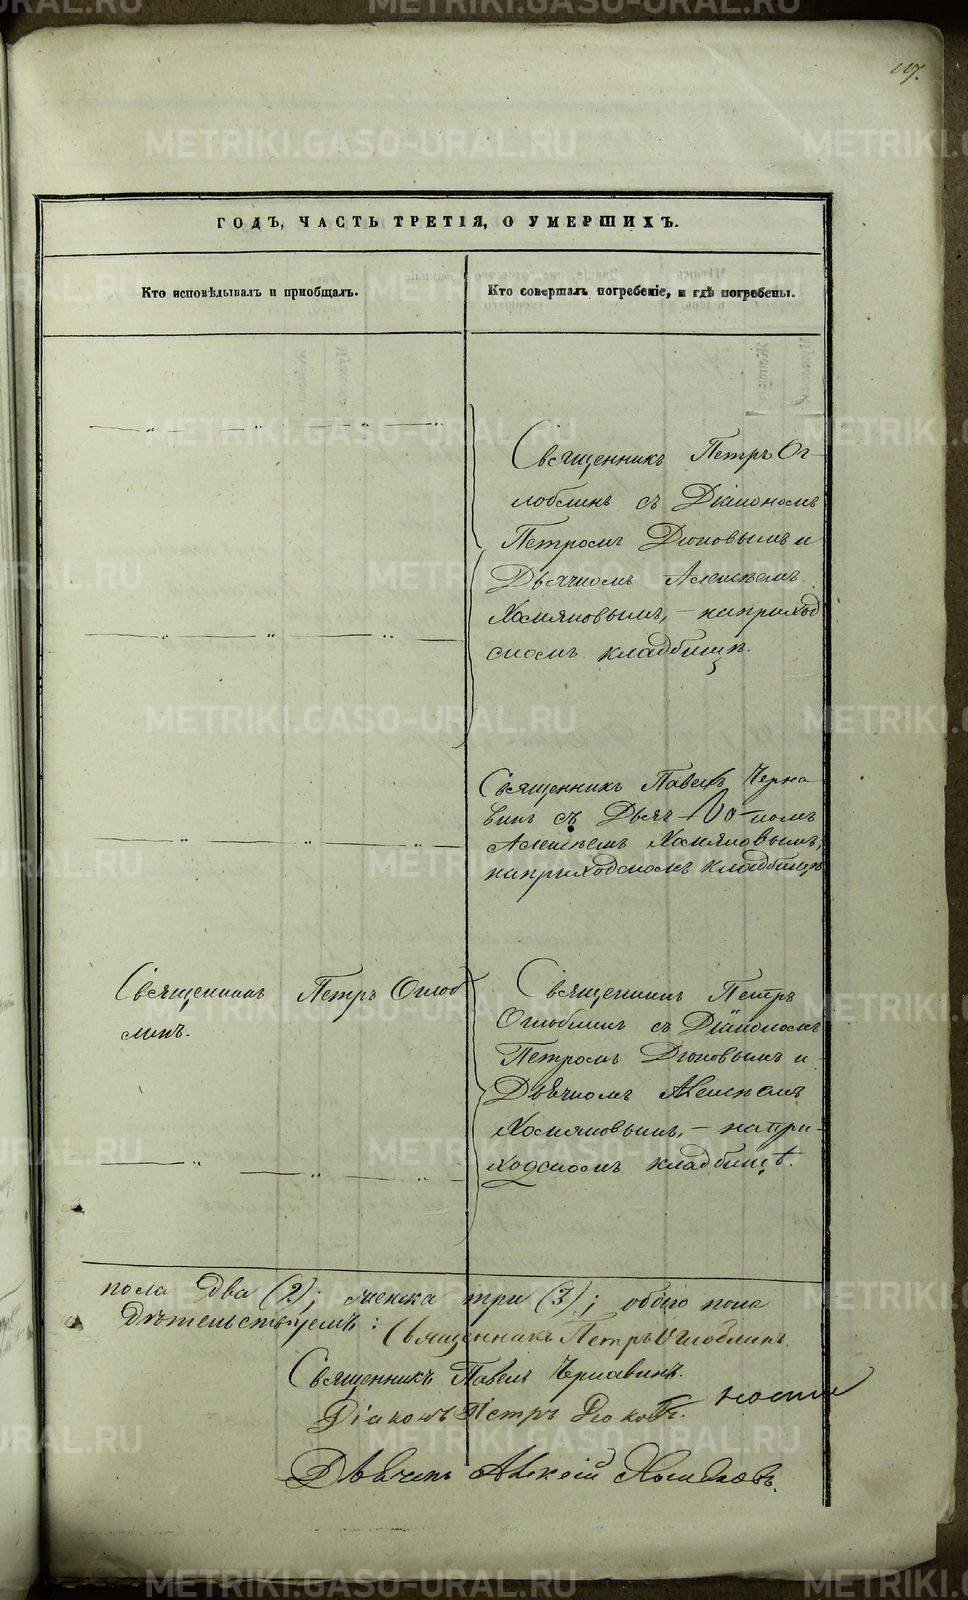 117.
ГОДЪ, ЧАСТЬ ТРЕТІЯ, О УМЕРШИХЪ.
Кто исповѣдывалъ и приобщалъ.
Кто совершалъ погребеніе, и гдѣ погребены.
Священникъ Петръ Ог-
лоблинъ съ Діакономъ
Петромъ Дюковымъ и
Дьячкомъ Алексѣемъ
Хомяковымъ, – на приход
скомъ кладбищѣ.
Священникъ Павелъ Черна
винъ съ Дьяч-комъ
Алексѣемъ Хомяковымъ,
на приходскомъ кладбищѣ
Священникъ Петръ Оглоб
линъ.
Священникъ Петръ
Оглоблинъ съ Діакономъ
Петромъ Дюковымъ и
Дьячкомъ Алексѣемъ
Хомяковымъ, – на при-
ходскомъ кладбищѣ.
пола два (2); женска три (3); обоего пола
дѣтельствуемъ: Священникъ Петръ Оглоблинъ.
Священникъ Павелъ Чернавинъ.
Діаконъ Петръ Дюковъ.
Дьячекъ Алексій Хомяковъ.
METRIKI.GASO-URAL.RU